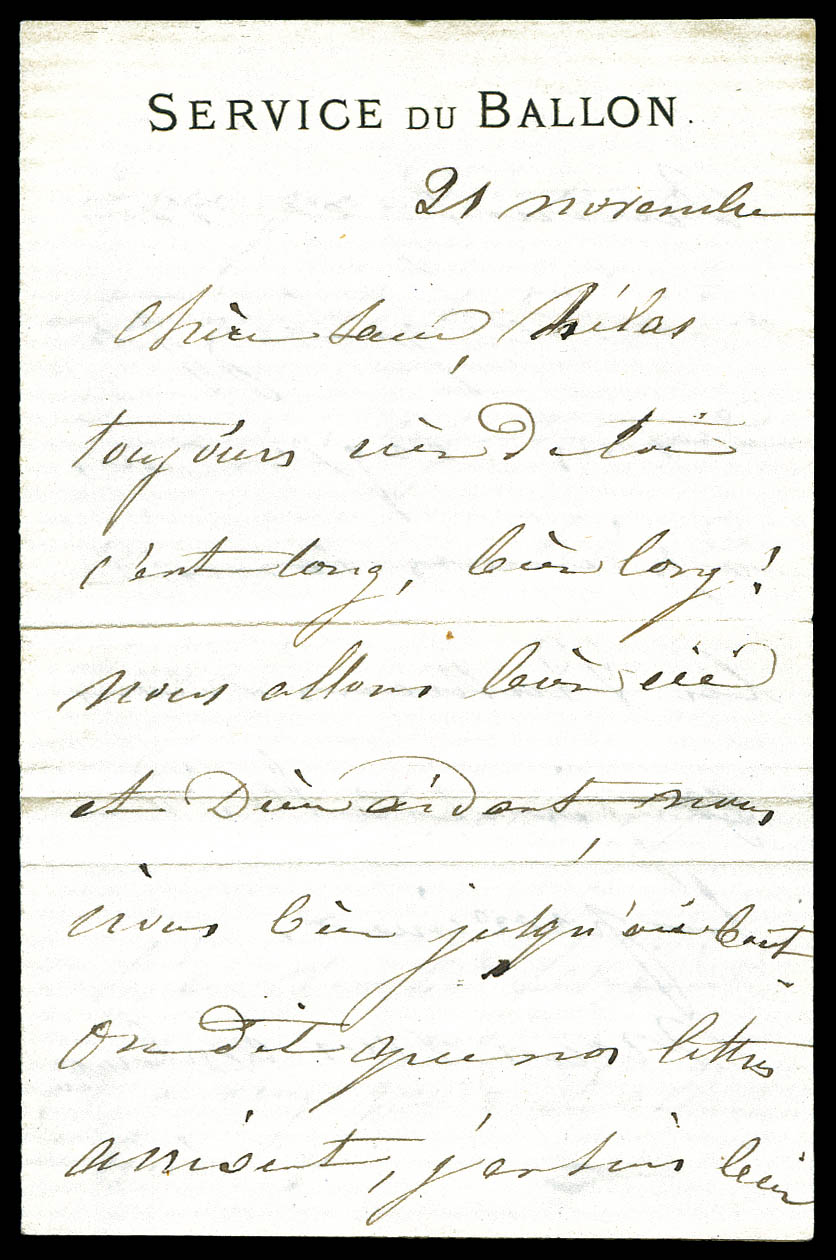 SERVICE DU BALLON.
21 novembre
Chère sœur, hélas
toujours rien de toi
c'est long, bien long!
nous allons bien ici
et Dieu aidant, nous
irons bien jusqu'au bout.
On dit que nos lettres
arrivent, j'en suis bien